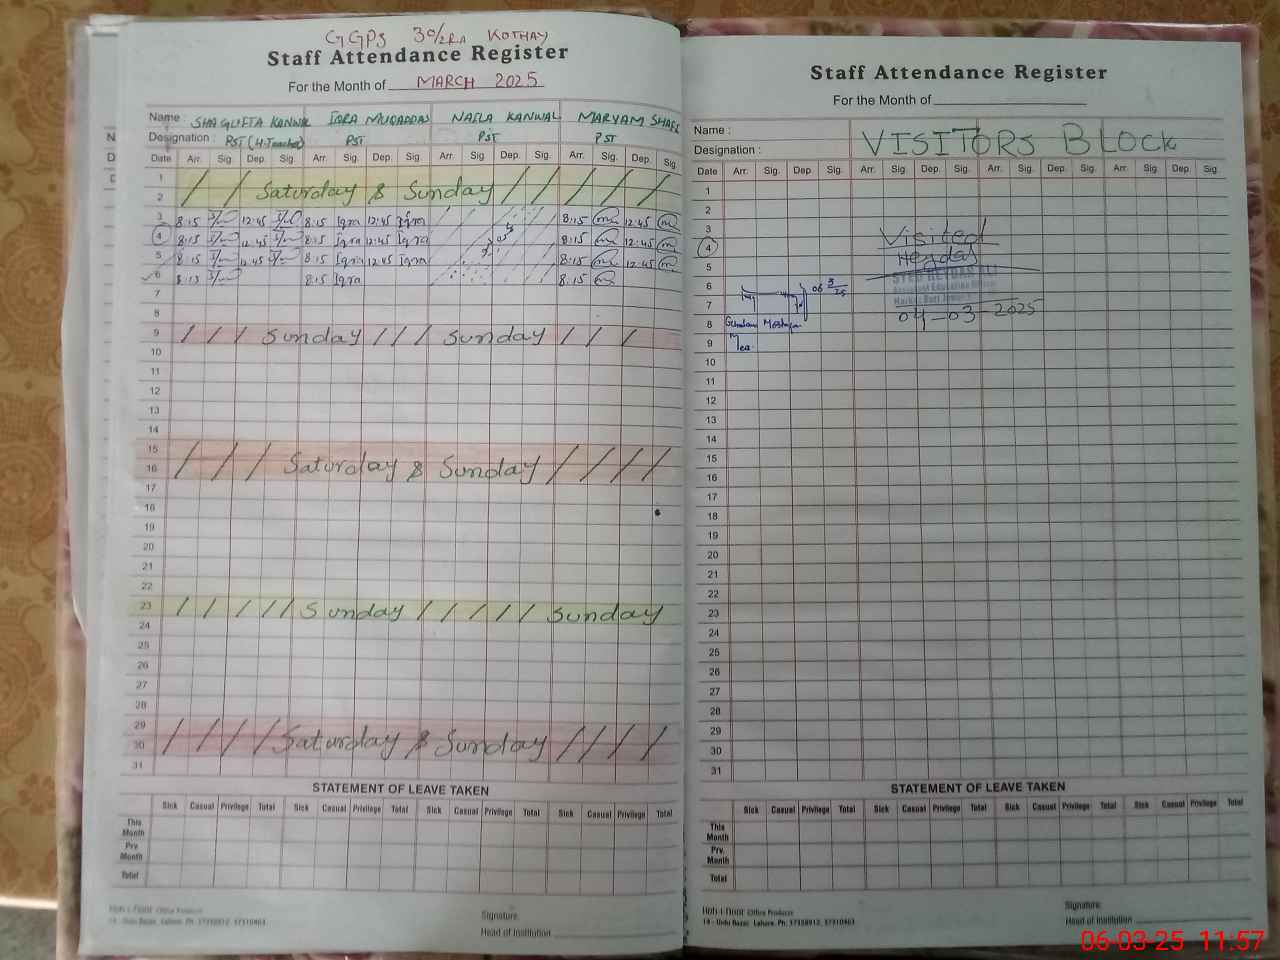 GGPS 30/2RA KOTHAY
Staff Attendance Register
For the Month of MARCH 2025
Name : SHAGUFTA KANWAL IQRA MUQADDAS NAILA KANWAL MARYAM SHAFI
Designation : PST (H.Teacher) PST PST PST
Date Arr. Sig. Dep. Sig. Arr. Sig. Dep. Sig. Arr. Sig. Dep. Sig. Arr. Sig. Dep. Sig.
1
2 Saturday & Sunday
3 8:15 12:45 8:15 Iqra 12:45 Iqra 8:15 12:45
4 8:15 12:45 8:15 Iqra 12:45 Iqra 8:15 12:45
5 8:15 12:45 8:15 Iqra 12:45 Iqra 8:15 12:45
6 8:15 8:15 Iqra 8:15
7
8
9 Sunday Sunday
10
11
12
13
14
15
16 Saturday & Sunday
17
18
19
20
21
22
23 Sunday Sunday
24
25
26
27
28
29
30 Saturday & Sunday
31
STATEMENT OF LEAVE TAKEN
Sick Casual Privilege Total Sick Casual Privilege Total Sick Casual Privilege Total Sick Casual Privilege Total
This Month
Prv. Month
Total
Office Products
14 - Urdu Bazar, Lahore. Ph. 37358912, 37310463
Signature
Head of Institution
Staff Attendance Register
For the Month of
Name :
Designation :
VISITORS BLOCK
Date Arr. Sig. Dep. Sig. Arr. Sig. Dep. Sig. Arr. Sig. Dep. Sig. Arr. Sig. Dep. Sig.
1
2
3 Visited
4
5
SYED HEYDAR ALI
6 06 3/25
7
04-03-2025
8
9 Mea
10
11
12
13
14
15
16
17
18
19
20
21
22
23
24
25
26
27
28
29
30
31
STATEMENT OF LEAVE TAKEN
Sick Casual Privilege Total Sick Casual Privilege Total Sick Casual Privilege Total Sick Casual Privilege Total
This Month
Prv. Month
Total
Office Products
14 - Urdu Bazar, Lahore. Ph. 37358912, 37310463
Signature
Head of Institution
06-03-25 11:57